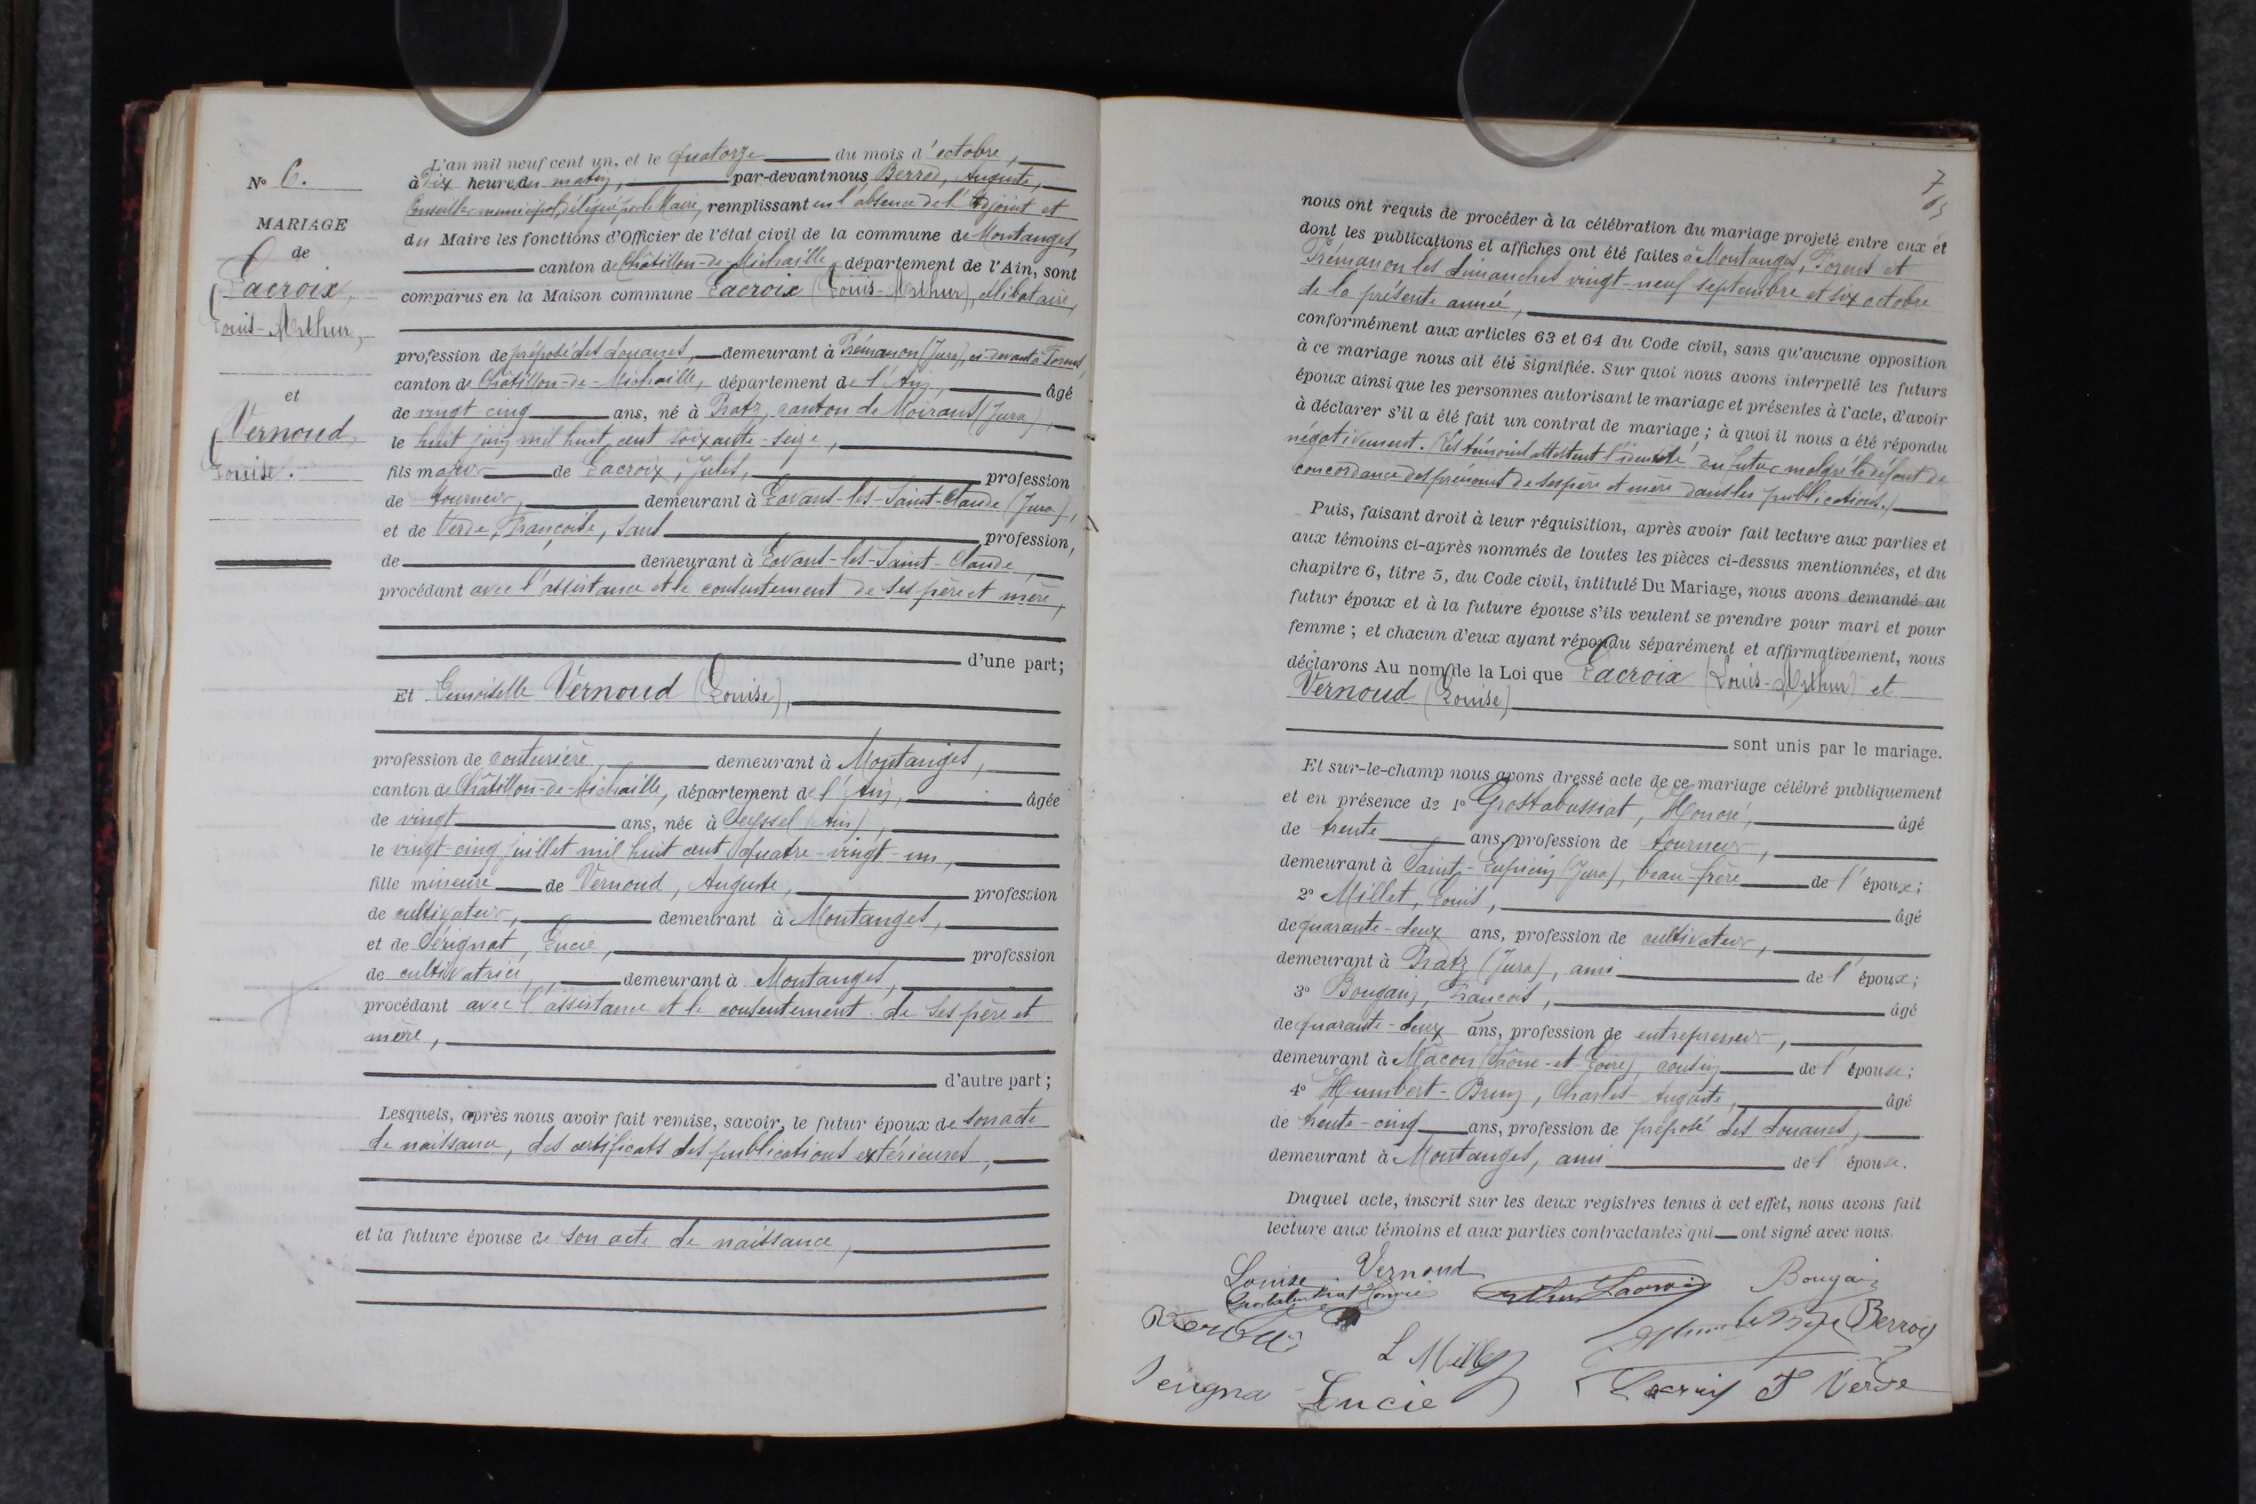 N° 6.
MARIAGE
de
Lacroix,
Louis-Arthur,
et
Vernoud,
Louise.
L'an mil neuf cent un, et le quatorze du mois d'octobre,
à dix heures du matin, par-devant nous Berrod, Auguste,
Conseiller municipal délégué par le Maire, remplissant en l'absence de l'Adjoint et
du Maire les fonctions d'Officier de l'état civil de la commune de Montanges,
canton de Châtillon-de-Michaille, département de l'Ain, sont
comparus en la Maison commune Lacroix (Louis-Arthur), célibataire,
profession de préposé des douanes, demeurant à Prémanon (Jura), ci-devant à Forens,
canton de Châtillon-de-Michaille, département de l'Ain, âgé
de vingt cinq ans, né à Pratz, canton de Moirans (Jura),
le huit juin mil huit cent soixante-seize,
fils majeur de Lacroix, Jules, profession
de tourneur, demeurant à Lavans-lès-Saint-Claude (Jura),
et de Verde, Françoise, sans profession,
de demeurant à Lavans-lès-Saint-Claude,
procédant avec l'assistance et le consentement de ses père et mère,
d'une part;
Et Demoiselle Vernoud (Louise),
profession de couturière, demeurant à Montanges,
canton de Châtillon-de-Michaille, département de l'Ain, âgée
de vingt ans, née à Seyssel (Ain),
le vingt cinq juillet mil huit cent quatre-vingt-un,
fille mineure de Vernoud, Auguste, profession
de cultivateur, demeurant à Montanges,
et de Sérignat, Lucie, profession
de cultivatrice, demeurant à Montanges,
procédant avec l'assistance et le consentement de ses père et
mère,
d'autre part;
Lesquels, après nous avoir fait remise, savoir, le futur époux de son acte
de naissance, des certificats des publications extérieures,
et la future épouse de son acte de naissance,
7
nous ont requis de procéder à la célébration du mariage projeté entre eux et
dont les publications et affiches ont été faites à Montanges, Forens et
Prémanon les dimanches vingt-neuf septembre et six octobre
de la présente année,
conformément aux articles 63 et 64 du Code civil, sans qu'aucune opposition
à ce mariage nous ait été signifiée. Sur quoi nous avons interpellé les futurs
époux ainsi que les personnes autorisant le mariage et présentes à l'acte, d'avoir
à déclarer s'il a été fait un contrat de mariage; à quoi il nous a été répondu
négativement. (Les témoins attestent l'identité du futur malgré le défaut de
concordance des prénoms de ses père et mère dans les publications.)
Puis, faisant droit à leur réquisition, après avoir fait lecture aux parties et
aux témoins ci-après nommés de toutes les pièces ci-dessus mentionnées, et du
chapitre 6, titre 5, du Code civil, intitulé Du Mariage, nous avons demandé au
futur époux et à la future épouse s'ils veulent se prendre pour mari et pour
femme; et chacun d'eux ayant répondu séparément et affirmativement, nous
déclarons Au nom de la Loi que Lacroix (Louis-Arthur) et
Vernoud (Louise)
sont unis par le mariage.
Et sur-le-champ nous avons dressé acte de ce mariage célébré publiquement
et en présence de 1° Grostabussiat, Honoré, âgé
de trente ans, profession de tourneur,
demeurant à Saint-Lupicin (Jura), beau-frère de l'époux;
2° Millet, Louis, âgé
de quarante-deux ans, profession de cultivateur,
demeurant à Pratz (Jura), ami de l'époux;
3° Bougain, François, âgé
de quarante-deux ans, profession de entrepreneur,
demeurant à Mâcon (Saône-et-Loire), cousin de l'épouse;
4° Humbert-Brun, Charles-Auguste, âgé
de trente-cinq ans, profession de préposé des douanes,
demeurant à Montanges, ami de l'épouse.
Duquel acte, inscrit sur les deux registres tenus à cet effet, nous avons fait
lecture aux témoins et aux parties contractantes qui ont signé avec nous.
Louise Vernoud Bougain
Berrod
L Millet
Lucie Lacroix F Verde